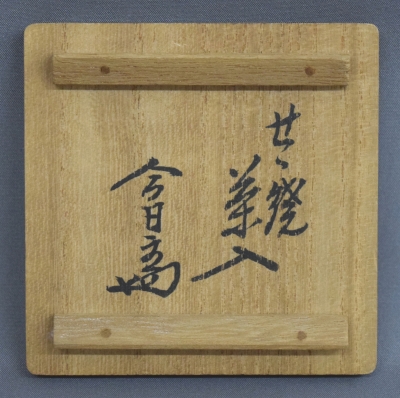 せゝ焼
茶入
今日